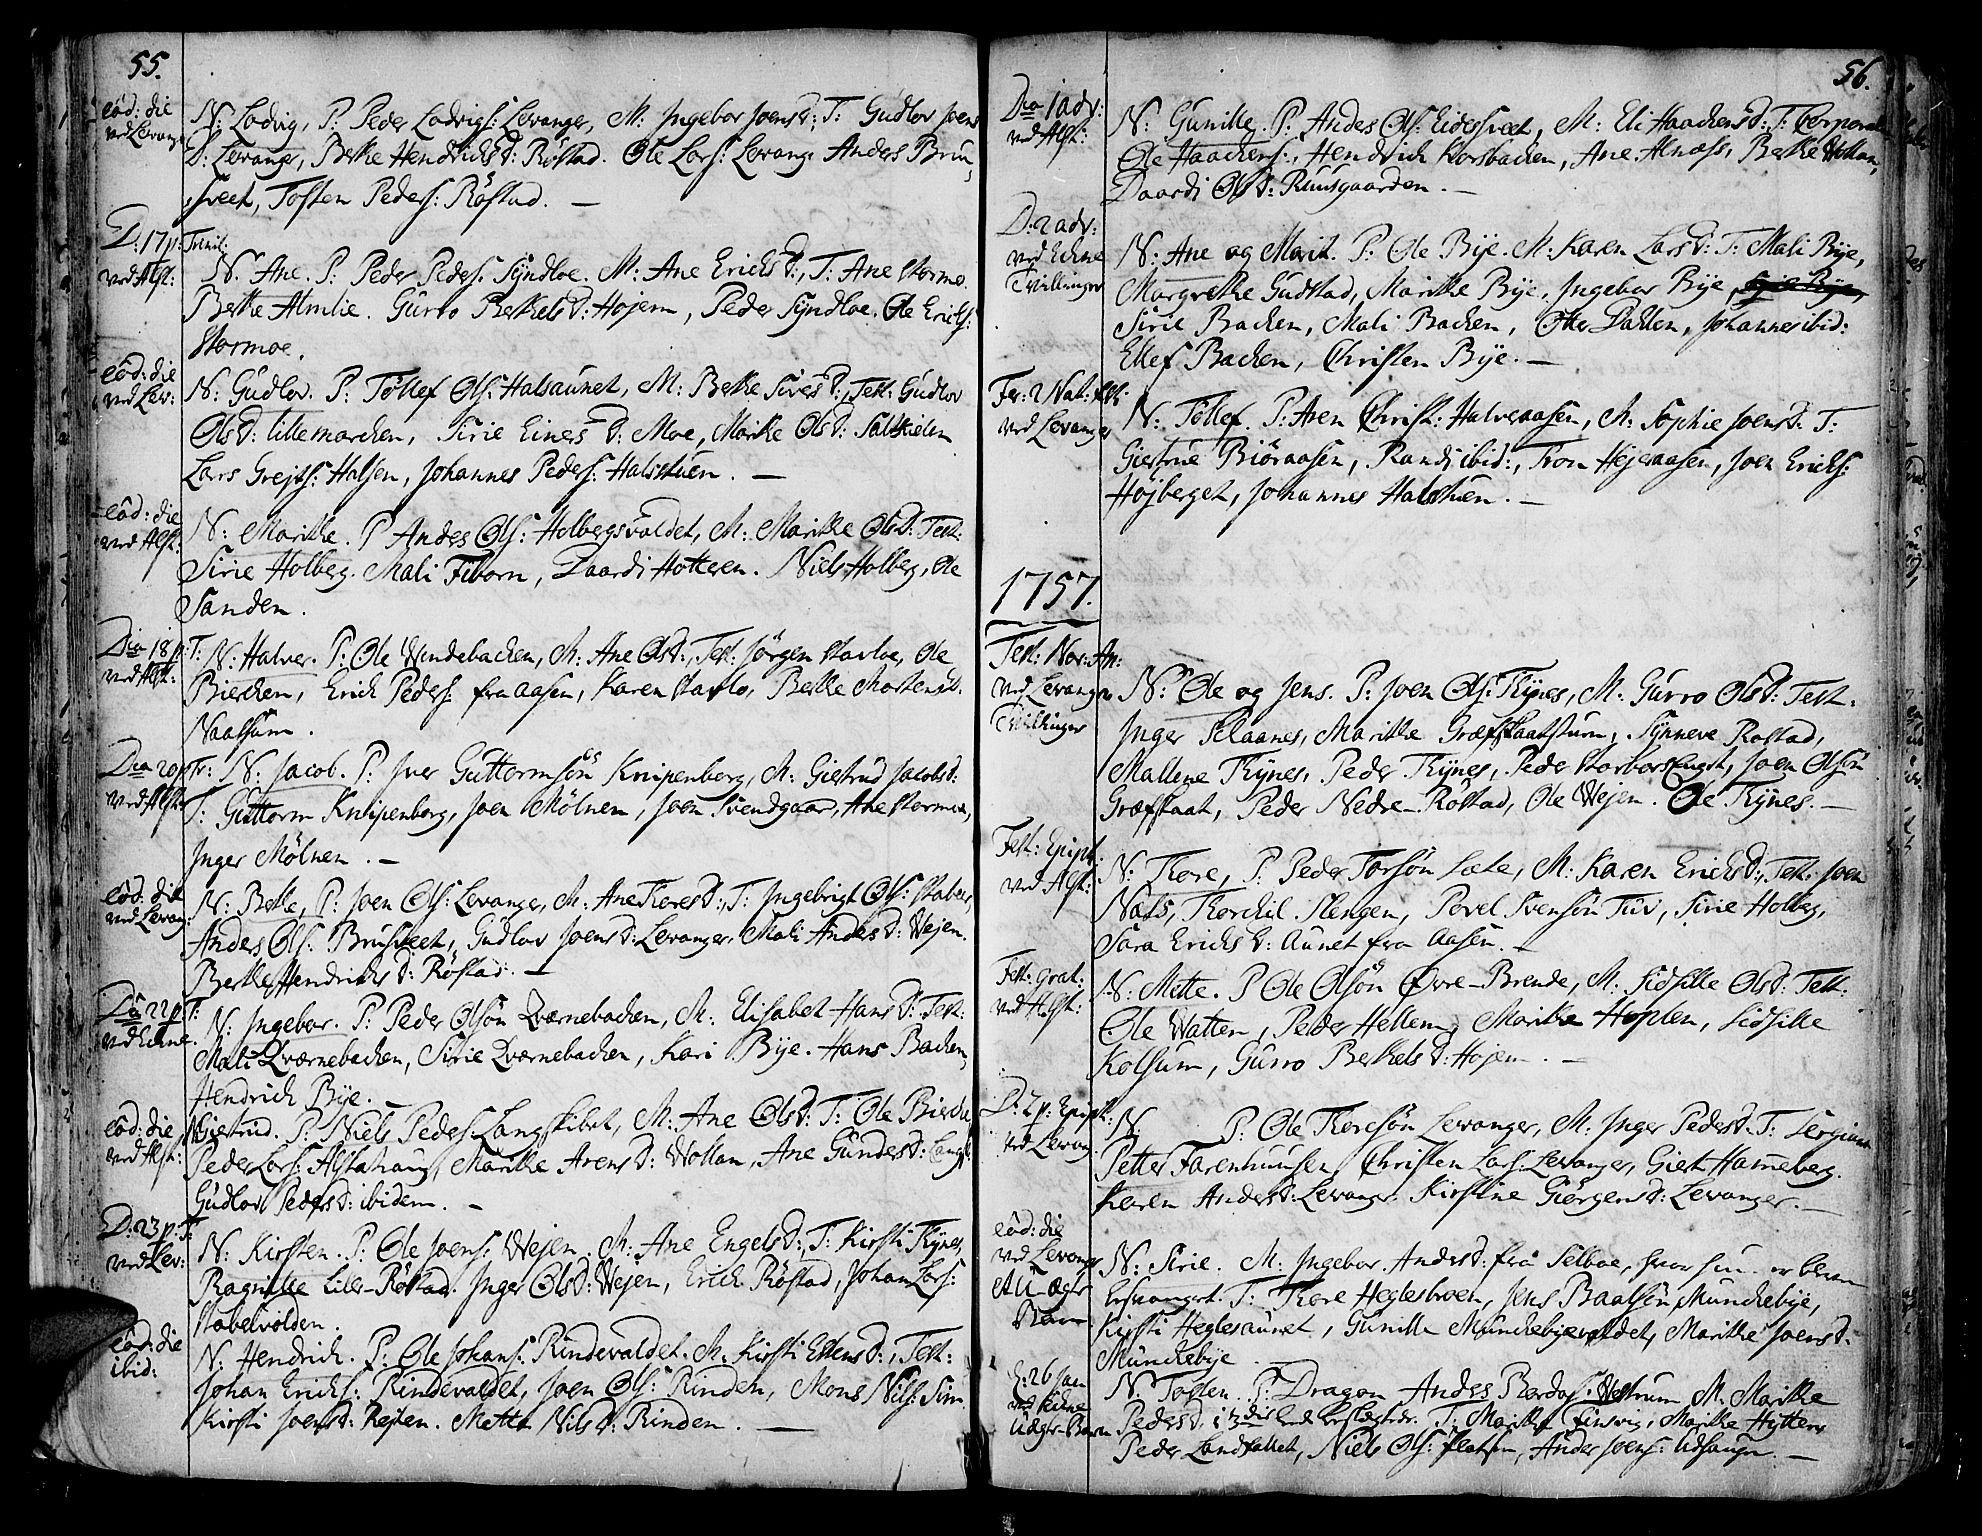 55.
eôd: die
ved Levang:
N: Lodvig, P: Peder Lodvigs: Levanger, M: Ingebor Joensd: T: Gudlov Joens
D: Levanger, Berthe Hendrichsd: Röstad. Ole Lars: Levang: Andes Bruu,
sveet, Tosten Peders: Röstad. —
D: 17 p: Trinit:
ved Alst:
N: Ane. P: Peder Peders: Syndloe. M: Ane Erichsd:, T: Ane Stormo.
Berthe Almlie. Gurro Berthelsd: Hojem, Peder Syndloe. Ole Erichs:
Stormoe.
eôd: die
ved Lev:
N: Gudlov. P: Töllef Ols: Halsaunet, M: Berthe Siversd:, Test: Gudlov
Olsd: Lillemarchen, Sirie Einersd: Moe, Marithe Olsd: Salthielen
Lars Grejts: Halsen, Johannes Peders: Halstuen. —
eôd: die
ved Alst:
N: Marithe. P Andes Ols: Holbergsvaldet, M: Marithe Olsd: Test:
Sirie Holberg. Mali Fiborn, Daardi Hotteren. Niels Holberg, Ole
Sanden.
Dca 18 p: T:
ved Alst:
N: Halver. P: Ole Windebachen, M: Ane Olsd:, Test: Jörgen Stavloe, Ole
Bierchen, Erich Peders: fra Aasen, Karen Stavlo, Berthe Mortensd.
Naalsum.
Dca 20 p Tr:
ved Alst:
N: Jacob. P: Iver Guttormsön Knipenberg, M: Giertrud Jacobsd:
T: Guttorm Knipenberg, Joen Mölnen, Joen Svendgaar, Ane Stormoe,
Inger Mölnen. —
eôd: die
ved Levang:
N: Berthe, P: Joen Ols: Levanger, M: Ane Thoresd:, T: Ingebrigt Ols: Stabel,
Andes Ols: Brusveet, Gudlov Joensd: Levanger. Mali Andesd: Wejen.
Berthe Hendrichsd: Röstad. —
Dca 22 p: T:
ved Echne.
N: Ingebor. P: Peder Olsön Qværnebachen, M: Elisabet Hansd: Test:
Mali Qværnebachen, Sirie Qværnebachen, Kari Bÿe. Hans Bachen,
Hendrich Bÿe. —
eôd: die
ved Alst:
N: Giertrud. P: Niels Peders: Langskibet, M: Ane Olsd: T: Ole Bierche
Peder Lars: Alstahaug, Marithe Arensd: Wollan, Ane Gundersd: Langs:
Gudlov Pedersd: ibidem. —
D: 23 p: T:
ved Lev:
N: Kirsten. P: Ole Joens: Wejen. M: Ane Engelsd:, T: Kirsti Thÿnes,
Ragnille Lille-Röstad. Inger Olsd: Wejen, Erich Röstad, Johan Lars:
Stabelvolden.
eôd: die
ibid:
N: Hendrich. P: Ole Johans: Rindevaldet. M: Kirsti Ellensd:, Test:
Johan Erichs: Rindevaldet, Joen Ols: Rinden, Mons Nils: Sim
Kirsti Joensd: Rejten. Mette Nilsd: Rinden. —
56.
Dca 1 adv:
ved Alst:
N: Gunille. P: Andes Ols: Eidesveet, M: Eli Haachensd: T: Corporal
Ole Haachens:, Hendrich Korsbachen, Ane Alnæss, Berthe Wollan,
Daardi Olsd: Ruusgaarden. —
D: 2 adv:
ved Echne
Tvillinger
N: Ane og Marit. P: Ole Bÿe. M: Karen Larsd: T: Mali Bÿe,
Margrethe Gudstad, Marithe Bÿe, Ingebor Bÿe,
Sirie Bachen, Mali Bachen, Otter Dahlen, Johannes ibid:
Ellef Bachen, Christen Bÿe. —
Fer: 2 Nat:
ved Levanger
N: Töllef. P: Aren Christ: Halveraasen, M: Sophie Joensd: T:
Giertrue Biöraasen, Randi ibid:, Tron Hejeraasen, Joen Erichs:
Höjberget, Johannes Halstuen. —
1757.
Fest: Nov: An:
ved Levanger
Tvillinger
N: Ole og Jens. P: Joen Ols: Thÿnes, M: Gurro Olsd: Test:
Inger Selaanes, Marithe Græfskaatstuen, Sÿnneve Rostad,
Mallene Thÿnes, Peder Thÿnes, Peder Storborsengest, Joen Olsön
Græfskaat, Peder Nedre-Röstad, Ole Wejen. Ole Thÿnes. —
Fest: Epiph:
ved Alst:
N: Thore, P: Peder Torsön Læte, M: Karen Erichsd:, Test: Joen
Nais, Thorchil Slengen, Povel Svensön Tuv, Sirie Holberg,
Sara Erichsd: Aunet fra Aasen. —
Fest: grat:
ved Alst:
N: Mette. P Ole Olsön Övre-Brende, M: Sidsille Olsd: Test:
Ole Watten, Peder Hellem, Marithe Hoplen, Sidsille
Kolsum, Gurro Berthelsd: Hojem. —
D: 2 p: Epiph:
ved Levang
N: P: Ole Thoresön Levanger, M: Inger Pedersd: T: Sergiant
Petter Farenhuusen, Christen Lars: Levanger, Giert Hammeberg.
Karen Andersd: Levanger. Kirstine Giörgensd: Levanger. —
eôd: die
ved Levanger
Et U-ægte
Barn
N: Sirie. M: Ingebor Andersd: fra Selboe, hvor hun er bleven
besvangret. T: Thore Heglesbroen, Jens Baalsön Munchebÿe,
Kirsti Heglesaunet, Gunille Munchebÿevaldet, Marithe Joensd:
Munchebÿe
D: 26 Jan
ved Echne
Uægte-Barn
N: Tosten. P: Dragon Andes Bardos: Westrum M: Marithe
Pedersd: i T: Marithe Finsvig, Marithe Hÿtteren
Peder Landfallet, Niels Ols: Floetsen, Ander Joens: Udhaugen. —